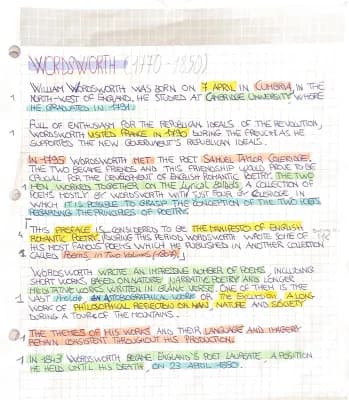 WORDSWORTH (1770 - 1850)
WILLIAM WORDSWORTH WAS BORN ON 7 APRIL IN CUMBRIA, IN THE
NORTH-WEST OF ENGLAND. HE STUDIED AT CAMBRIDGE UNIVERSITY WHERE
1 HE GRADUATED IN 1791.
FULL OF ENTHUSIASM FOR THE REPUBLICAN IDEALS OF THE REVOLUTION,
1 WORDSWORTH VISITED FRANCE IN 1790 DURING THE FRENCH AS HE
SUPPORTED THE NEW GOVERNMENT'S REPUBLICAN IDEALS.
IN 1795 WORDSWORTH MET THE POET SAMUEL TAYLOR COLERIDGE,
THE TWO BECAME FRIENDS AND THIS FRIENDSHIP WOULD PROVE TO BE
CRUCIAL FOR THE DEVELOPMENT OF ENGLISH ROMANTIC POETRY. THE TWO
1 MEN WORKED TOGETHER ON THE Lyrical Ballads, A COLLECTION OF
POEMS MOSTLY BY WORDSWORTH WITH JUST FOUR BY COLERIDGE IN
WHICH IT IS POSSIBLE TO GRASP THE CONCEPTION OF THE TWO POETS
REGARDING THE PRINCIPLES OF POETRY.
THIS PREFACE IS CONSIDERED TO BE THE MANIFESTO OF ENGLISH
ROMANTIC POETRY. DURING THIS PERIOD WORDSWORTH WROTE SOME OF
HIS MOST FAMOUS POEMS WHICH HE PUBLISHED IN ANOTHER COLLECTION
CALLED Poems, in Two Volumes (1807).
WORDSWORTH WROTE AN IMPRESSIVE NUMBER OF POEMS, INCLUDING
SHORT WORKS, BASED ON NATURE NARRATIVE POETRY AND LONGER
MEDITATIVE WORKS WRITTEN IN BLANK VERSE. ONE OF THEM IS THE
VAST Prelude AN AUTOBIOGRAPHICAL WORK OR The Excursion A LONG
1 WORK OF PHILOSOPHICAL REFLECTION ON MAN, NATURE AND SOCIETY
DURING A TOUR OF THE MOUNTAINS.
THE THEMES OF HIS WORKS AND THEIR LANGUAGE AND IMAGERY
1 REMAIN CONSISTENT THROUGHOUT HIS PRODUCTION.
1 IN 1843 WORDSWORTH BECAME ENGLAND'S POET LAUREATE, A POSITION
HE HELD UNTIL HIS DEATH, ON 23 APRIL 1850.